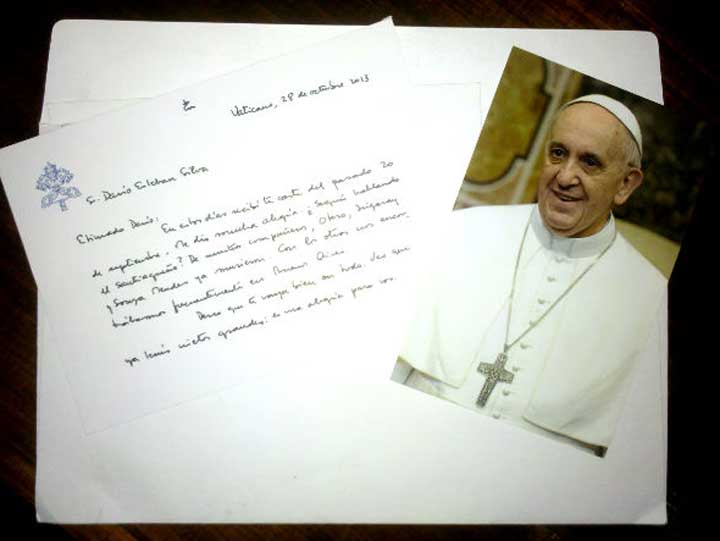 Vaticano, 28 de octubre 2013
Sr. Darío Esteban Silva
Estimado Darío:
En estos días recibí tu carta del pasado 20
de septiembre. Me dio mucha alegría. ¿Seguís hablando
el santiagueño? De nuestros compañeros, Otero,
y Souza Mendes ya murieron. Con los otros nos encon-
trábamos frecuentemente en Buenos Aires.
Deseo que te vaya bien en todo. Veo que
ya tenés nietos grandes; es una alegría para vos.